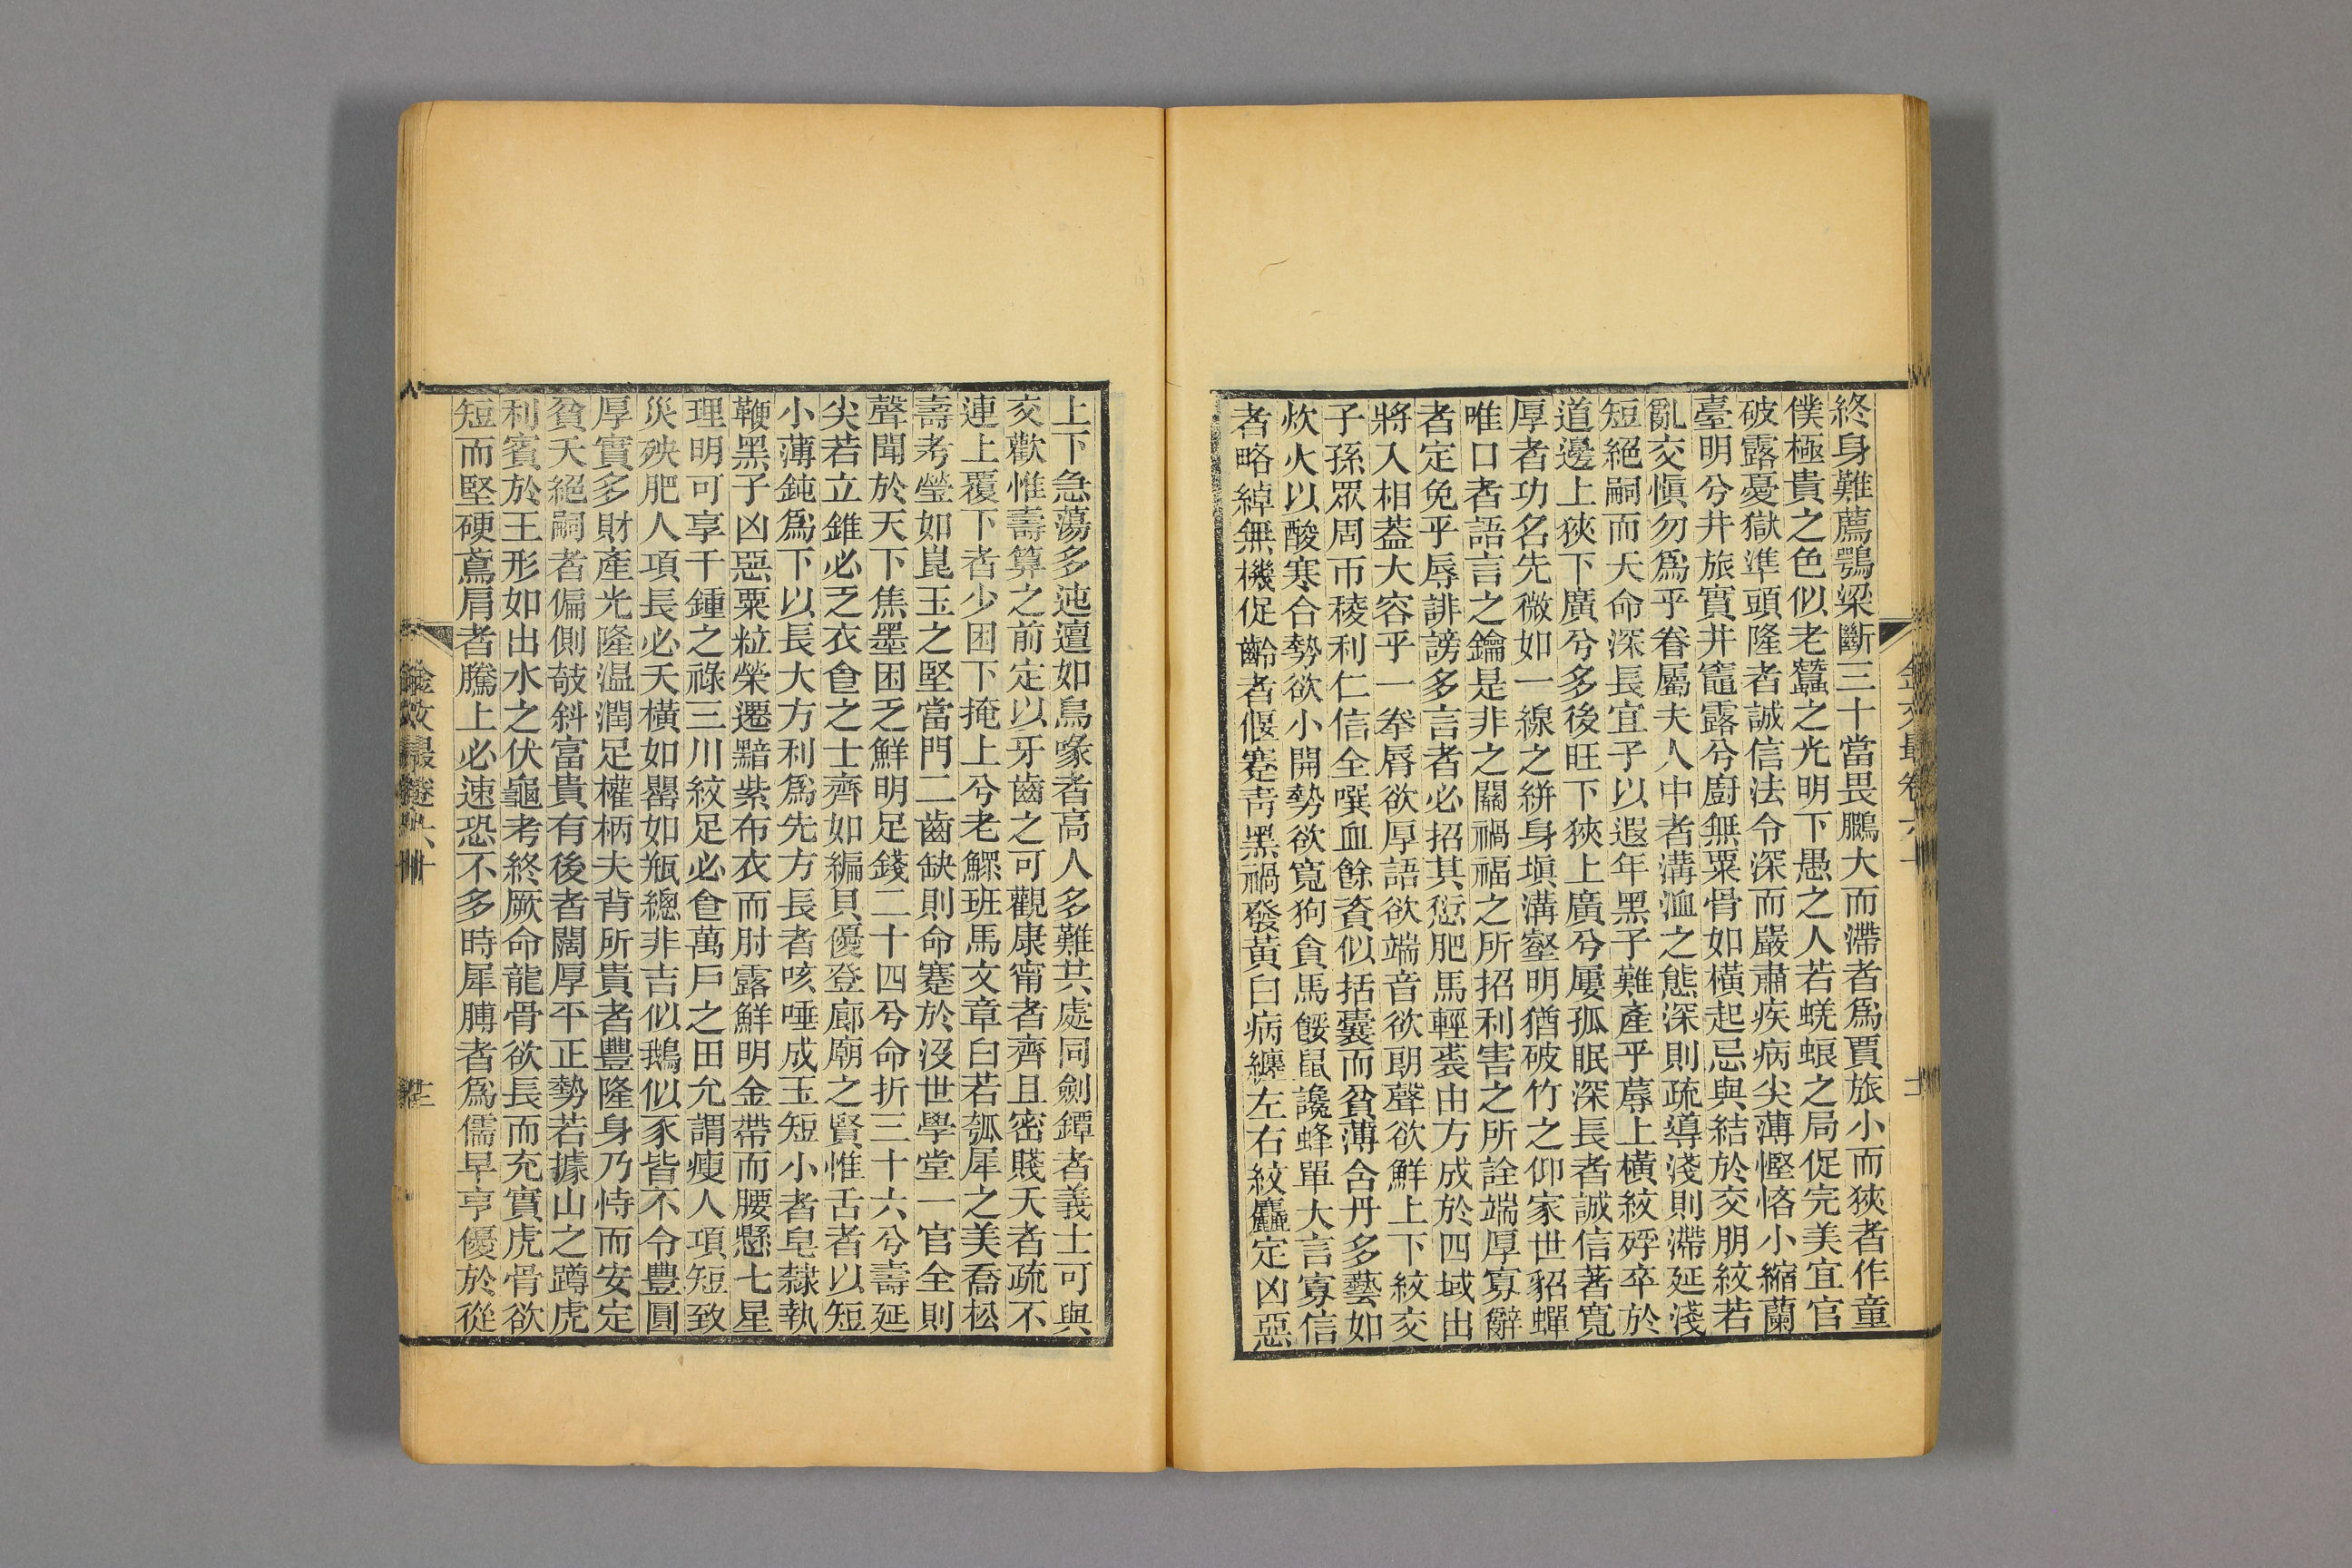 終身難薦鶚梁斷三十當畏鵩大而滯者爲賈旅小而狹者作童
僕極貴之色似老蠶之光明下愚之人若蜣蜋之局促完美宜官
破露憂獄準頭隆者誠信法令深而嚴肅疾病尖薄慳悋小縮蘭
臺明兮井旅實井竈露兮廚無粟骨如橫起忌與結於交朋紋若
亂交愼勿爲乎眷屬夫人中者溝洫之態深則疏導淺則滯延淺
短絕嗣而夭命深長宜子以遐年黑子難產乎蓐上橫紋殍卒於
道邊上狹下廣兮多後旺下狹上廣兮屢孤眠深長者誠信著寬
厚者功名先微如一線之絣身塡溝壑明猶破竹之仰家世貂蟬
唯口者語言之鑰是非之關禍福之所招利害之所詮端厚寡辭
者定免乎辱誹謗多言者必招其愆肥馬輕裘由方成於四域出
將入相蓋大容乎一拳脣欲厚語欲端音欲朗聲欲鮮上下紋交
子孫眾周帀稜利仁信全噀血餘資似括囊而貧薄含丹多藝如
炊火以酸寒合勢欲小開勢欲寬狗貪馬餒鼠讒蜂單大言寡信
者略綽無機促齡者偃蹇靑黑禍發黃白病纏左右紋麤定凶惡
上下急蕩多迍邅如鳥喙者高人多難共處同劍鐔者義士可與
交歡惟壽算之前定以牙齒之可觀康甯者齊且密賤夭者疏不
連上覆下者少困下掩上兮老鰥班馬文章白若瓠犀之美喬松
壽考瑩如崑玉之堅當門二齒缺則命蹇於沒世學堂一官全則
聲聞於天下焦墨困乏鮮明足錢二十四兮命折三十六兮壽延
尖若立錐必乏衣食之士齊如編貝優登廊廟之賢惟舌者以短
小薄鈍爲下以長大方利爲先方長者咳唾成玉短小者皂隸執
鞭黑子凶惡粟粒榮遷黯紫布衣而肘露鮮明金帶而腰懸七星
理明可享千鍾之祿三川紋足必食萬戶之田允謂瘦人項短致
災殃肥人項長必夭橫如罌如甁總非吉似鵝似豕皆不令豐圓
厚實多財產光隆溫潤足權柄夫背所貴者豐隆身乃恃而安定
貧夭絕嗣者偏側攲斜富貴有後者闊厚平正勢若據山之蹲虎
利賓於王形如出水之伏龜考終厥命龍骨欲長而充實虎骨欲
短而堅硬鳶肩者騰上必速恐不多時犀膊者爲儒早亨優於從
金文最卷六十